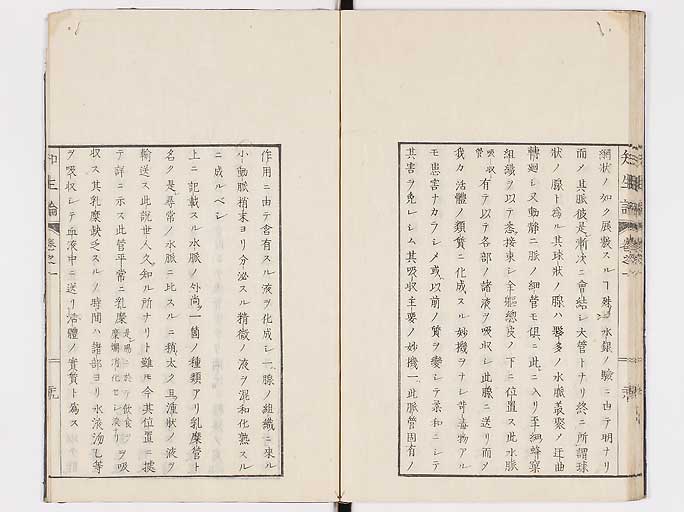 網狀ノ如ク展敷スルヿ殊ニ水銀ノ驗ニ由テ明ナリ
而メ其脈彼是漸次ニ會結シ大管トナリ終ニ所謂球
狀ノ腺ト為ル其球狀ノ腺ハ夥多ノ水脈叢聚ノ迂曲
轉廻シ又動靜二脈ノ細管モ俱ニ此ニ入リ至細蜂窠
組織ヲ以テ悉接束シ全軀總皮ノ下ニ位置ス此水脈
吸收管有テ以テ各部ノ諸液ヲ吸收シ此腺ニ送リ而ヲ
我カ活體ノ類質ニ化成スル妙機ヲナシ苛毒物アル
モ患害ナカラシメ或以前ノ質ヲ變シテ柔和ニシテ
其害ヲ免レシム其吸收主要ノ妙機一此脈管固有ノ
作用ニ由テ含有スル液ヲ化成シ二腺ノ組織ニ來ル
小動脈梢末ヨリ分泌スル精微ノ液ヲ混和化熟スル
ニ成ルベシ
上ニ記載スル水脈ノ外尚一箇ノ種類アリ乳糜管ト
名ク是尋常ノ水脈ニ比スルニ稍太ク且凍狀ノ液ヲ
輸送ス此說世人久知ル所ナリト雖モ今其位置ニ據
テ詳ニ示ス此管平常ニ乳糜是腸ニ於テ飲食ヲ糜爛消化セシ液ナリヲ吸
收ス其乳糜缺乏スルノ時間ハ諸部ヨリ水液湯乙等
ヲ吸收シテ血液中ニ送リ活體ノ實質ト為ス
知生論
卷之一